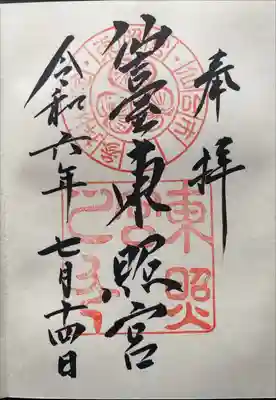 奉拝
仙臺東照宮
令和六年 七月十四日
東照
宮
之印